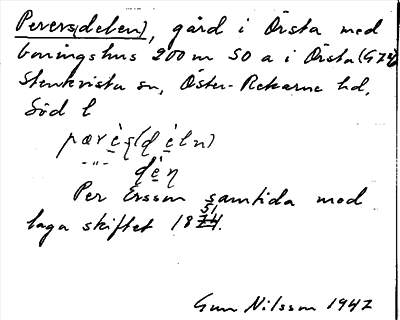 Perers(delen), gård i Örsta med
boningshus 200 m SO a i Örsta (G74)
Stenkvista sn, Öster-Rekarne hd,
Söd l
pærèș(dèln)
-"- dèn
Per Ersson samtida med
laga skiftet 1851.
Gun Nilsson 1947